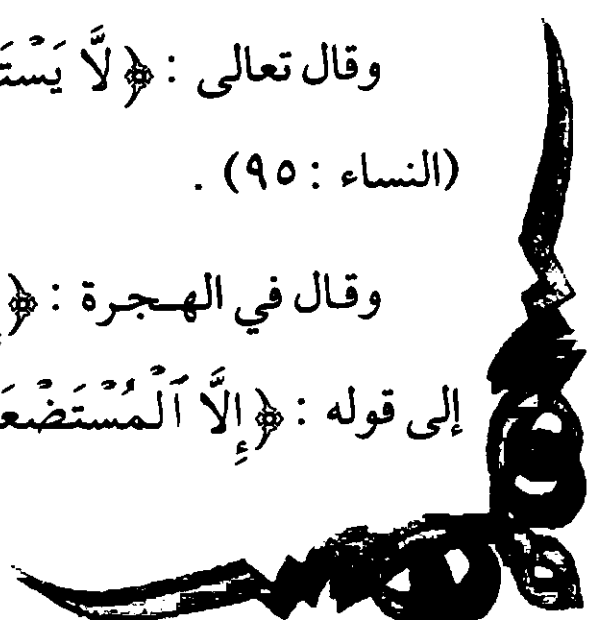 وقال تعالى : ﴿ لَّا يَسْتَ
(النساء : ٩٥) .
وقال في الهجرة : ﴿ إِ
إلى قوله : ﴿ إِلَّا ٱلْمُسْتَضْعَ